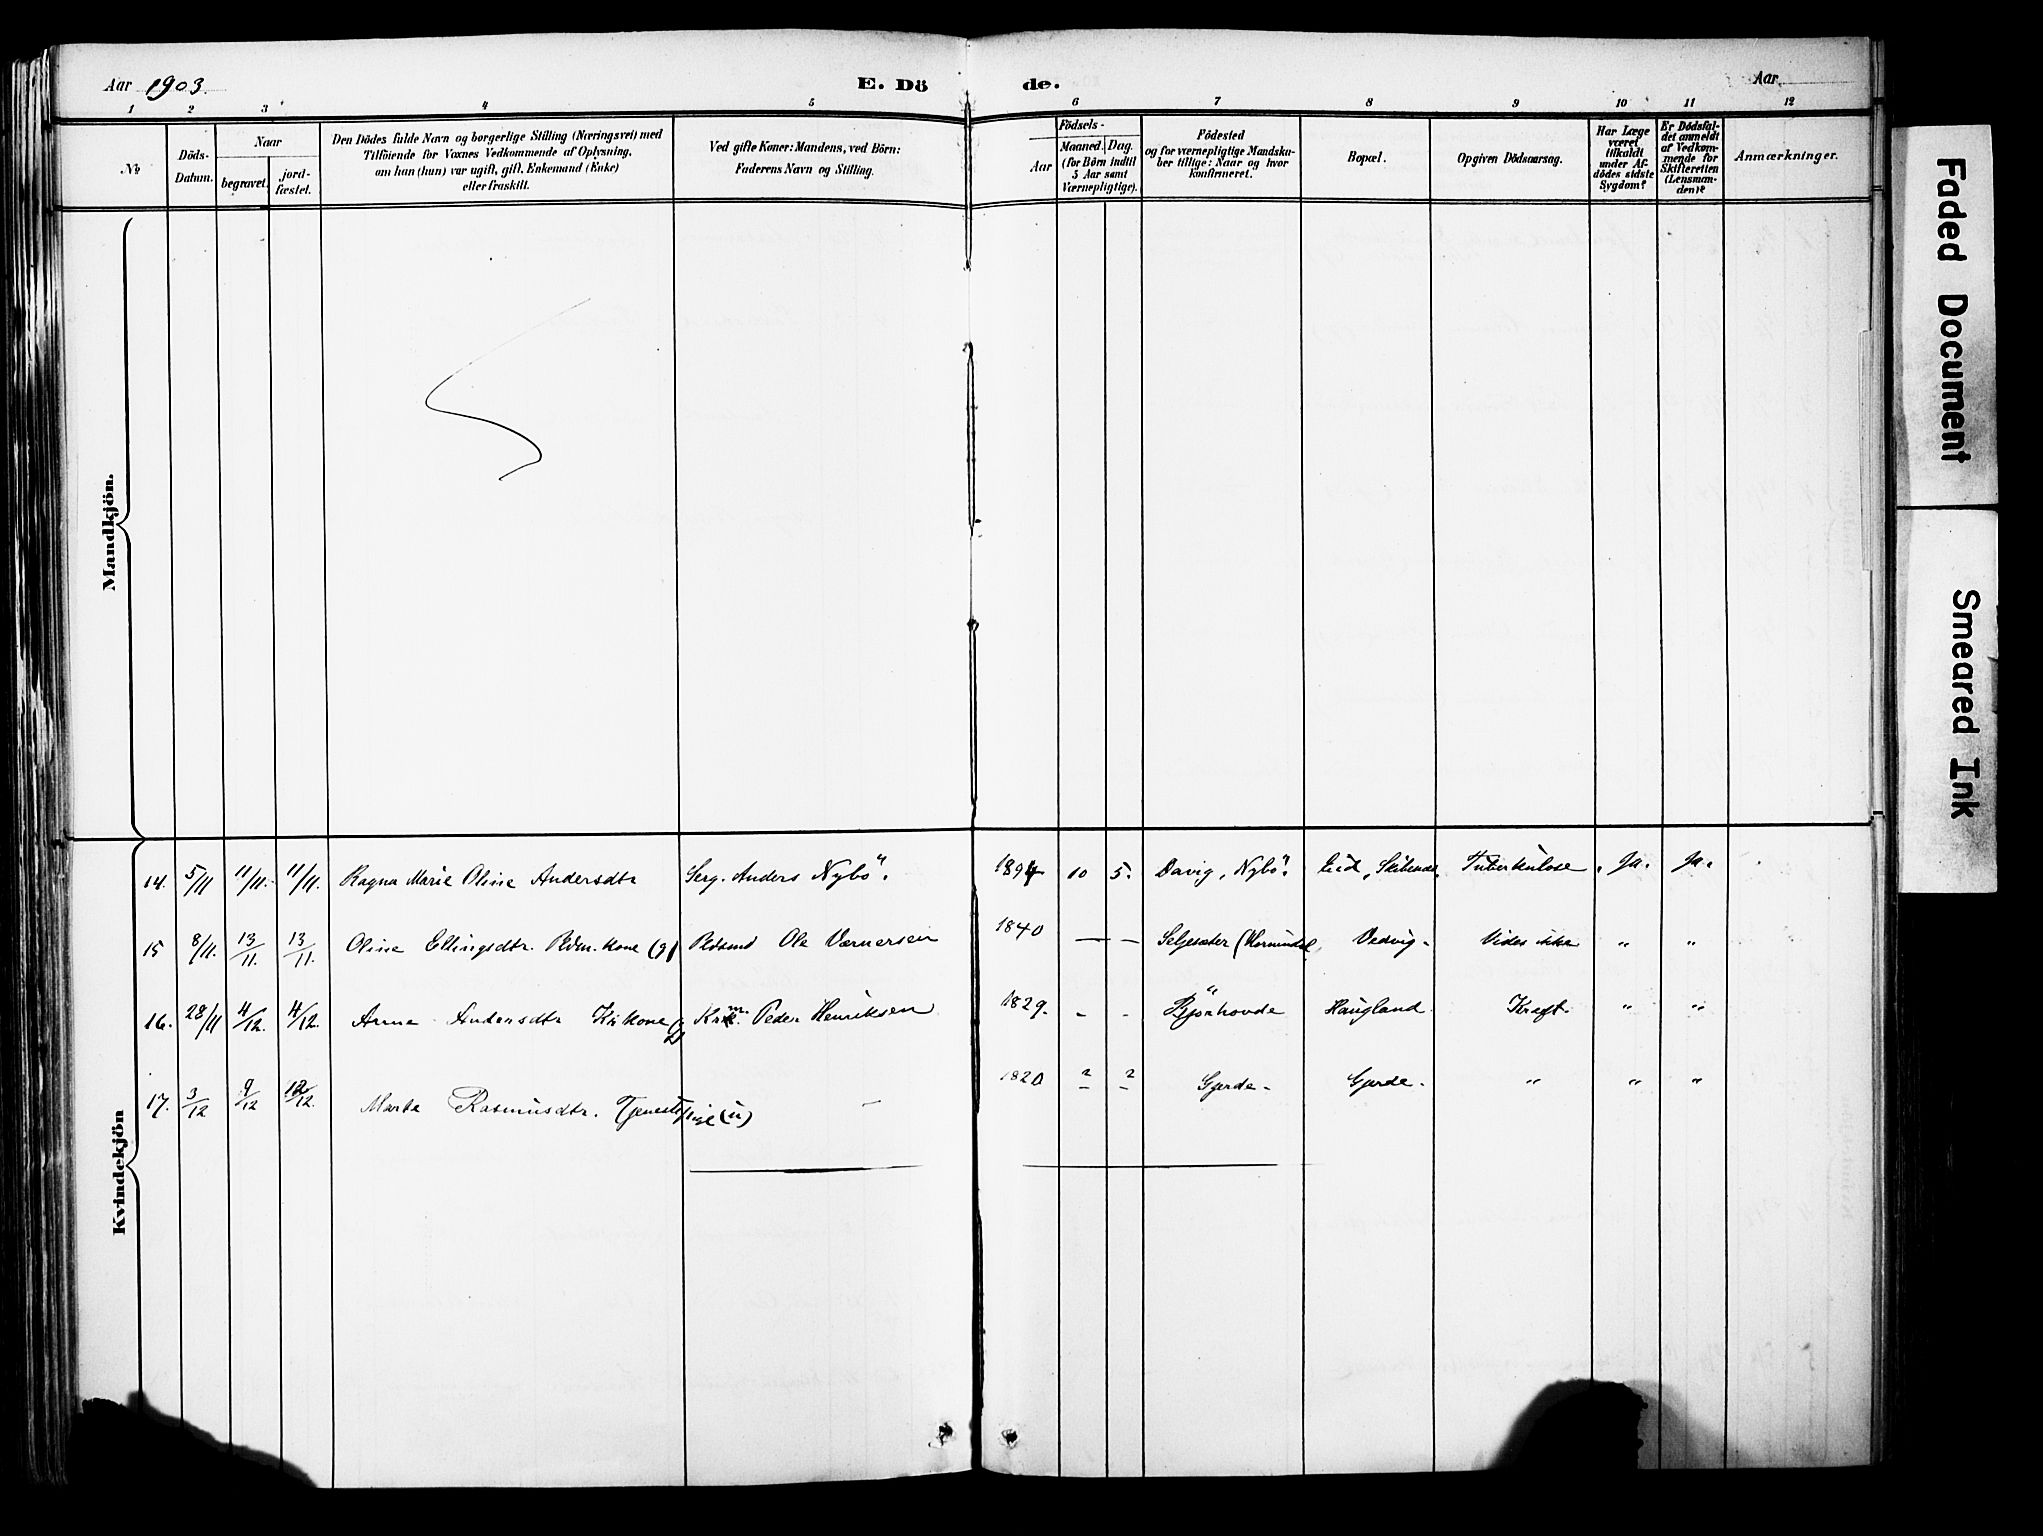 Aar 1903.
E. Dö de.
Aar
1 2 3 4 5 6 7 8 9 10 11 12
No
Döds-Datum.
Naar
begravet.
jord-fæstet.
Den Dödes fulde Navn og borgerlige Stilling (Næringsvei) med
Tilföiende for Voxnes Vedkommende af Oplysning,
om han (hun) var ugift, gift, Enkemand (Enke)
eller fraskilt.
Ved gifte Koner: Mandens, ved Börn:
Faderens Navn og Stilling.
Födsels-
Aar
Maaned. Dag.
(for Börn indtil
5 Aar samt
Værnepligtige).
Födested
og for værnepligtige Mandska-
ber tillige: Naar og hvor
konfirmeret.
Bopæl.
Opgiven Dödsaarsag.
Har Læge
været
tilkaldt
under Af-
dödes sidste
Sygdom?
Er Dödsfal-
det anmeldt
af Vedkom-
mende for
Skifteretten
(Lensman-
den)?
Anmærkninger.
Mandkjön.
Kvindekjön
14. 5/11 11/11. 11/11. Ragna Marie Oline Andersdtr Serg. Anders Nybö. 1894 10 5. Davig, Nybö. Eid, Tuberkulose Ja. Ja.
15 8/11. 13/11. 13/11. Oline Ellingsdtr. kone (g) Ole Værnersen 1840 — — Seljesæter (Hornindal Vedvig - Vides ikke " "
16. 28/11 4/12. 4/12. Anna Andersdtr Kone (g) Peder Henriksen 1829. - - Björhovde Haugland. Kræft. " "
17. 3/12 9/12 12. Marta Rasmusdtr. Tjenestepige (u) — 1820 ? ? Gjerde - Gjerde. " " "
Faded Document
Smeared Ink